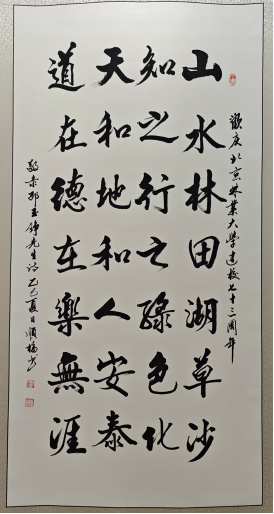 歡庆北京林業大學建校七十三周年
山水林田湖草沙
知之行之綠色化
天和地和人安泰
道在德在樂無涯
敬录邢玉先生诗乙巳夏日順书